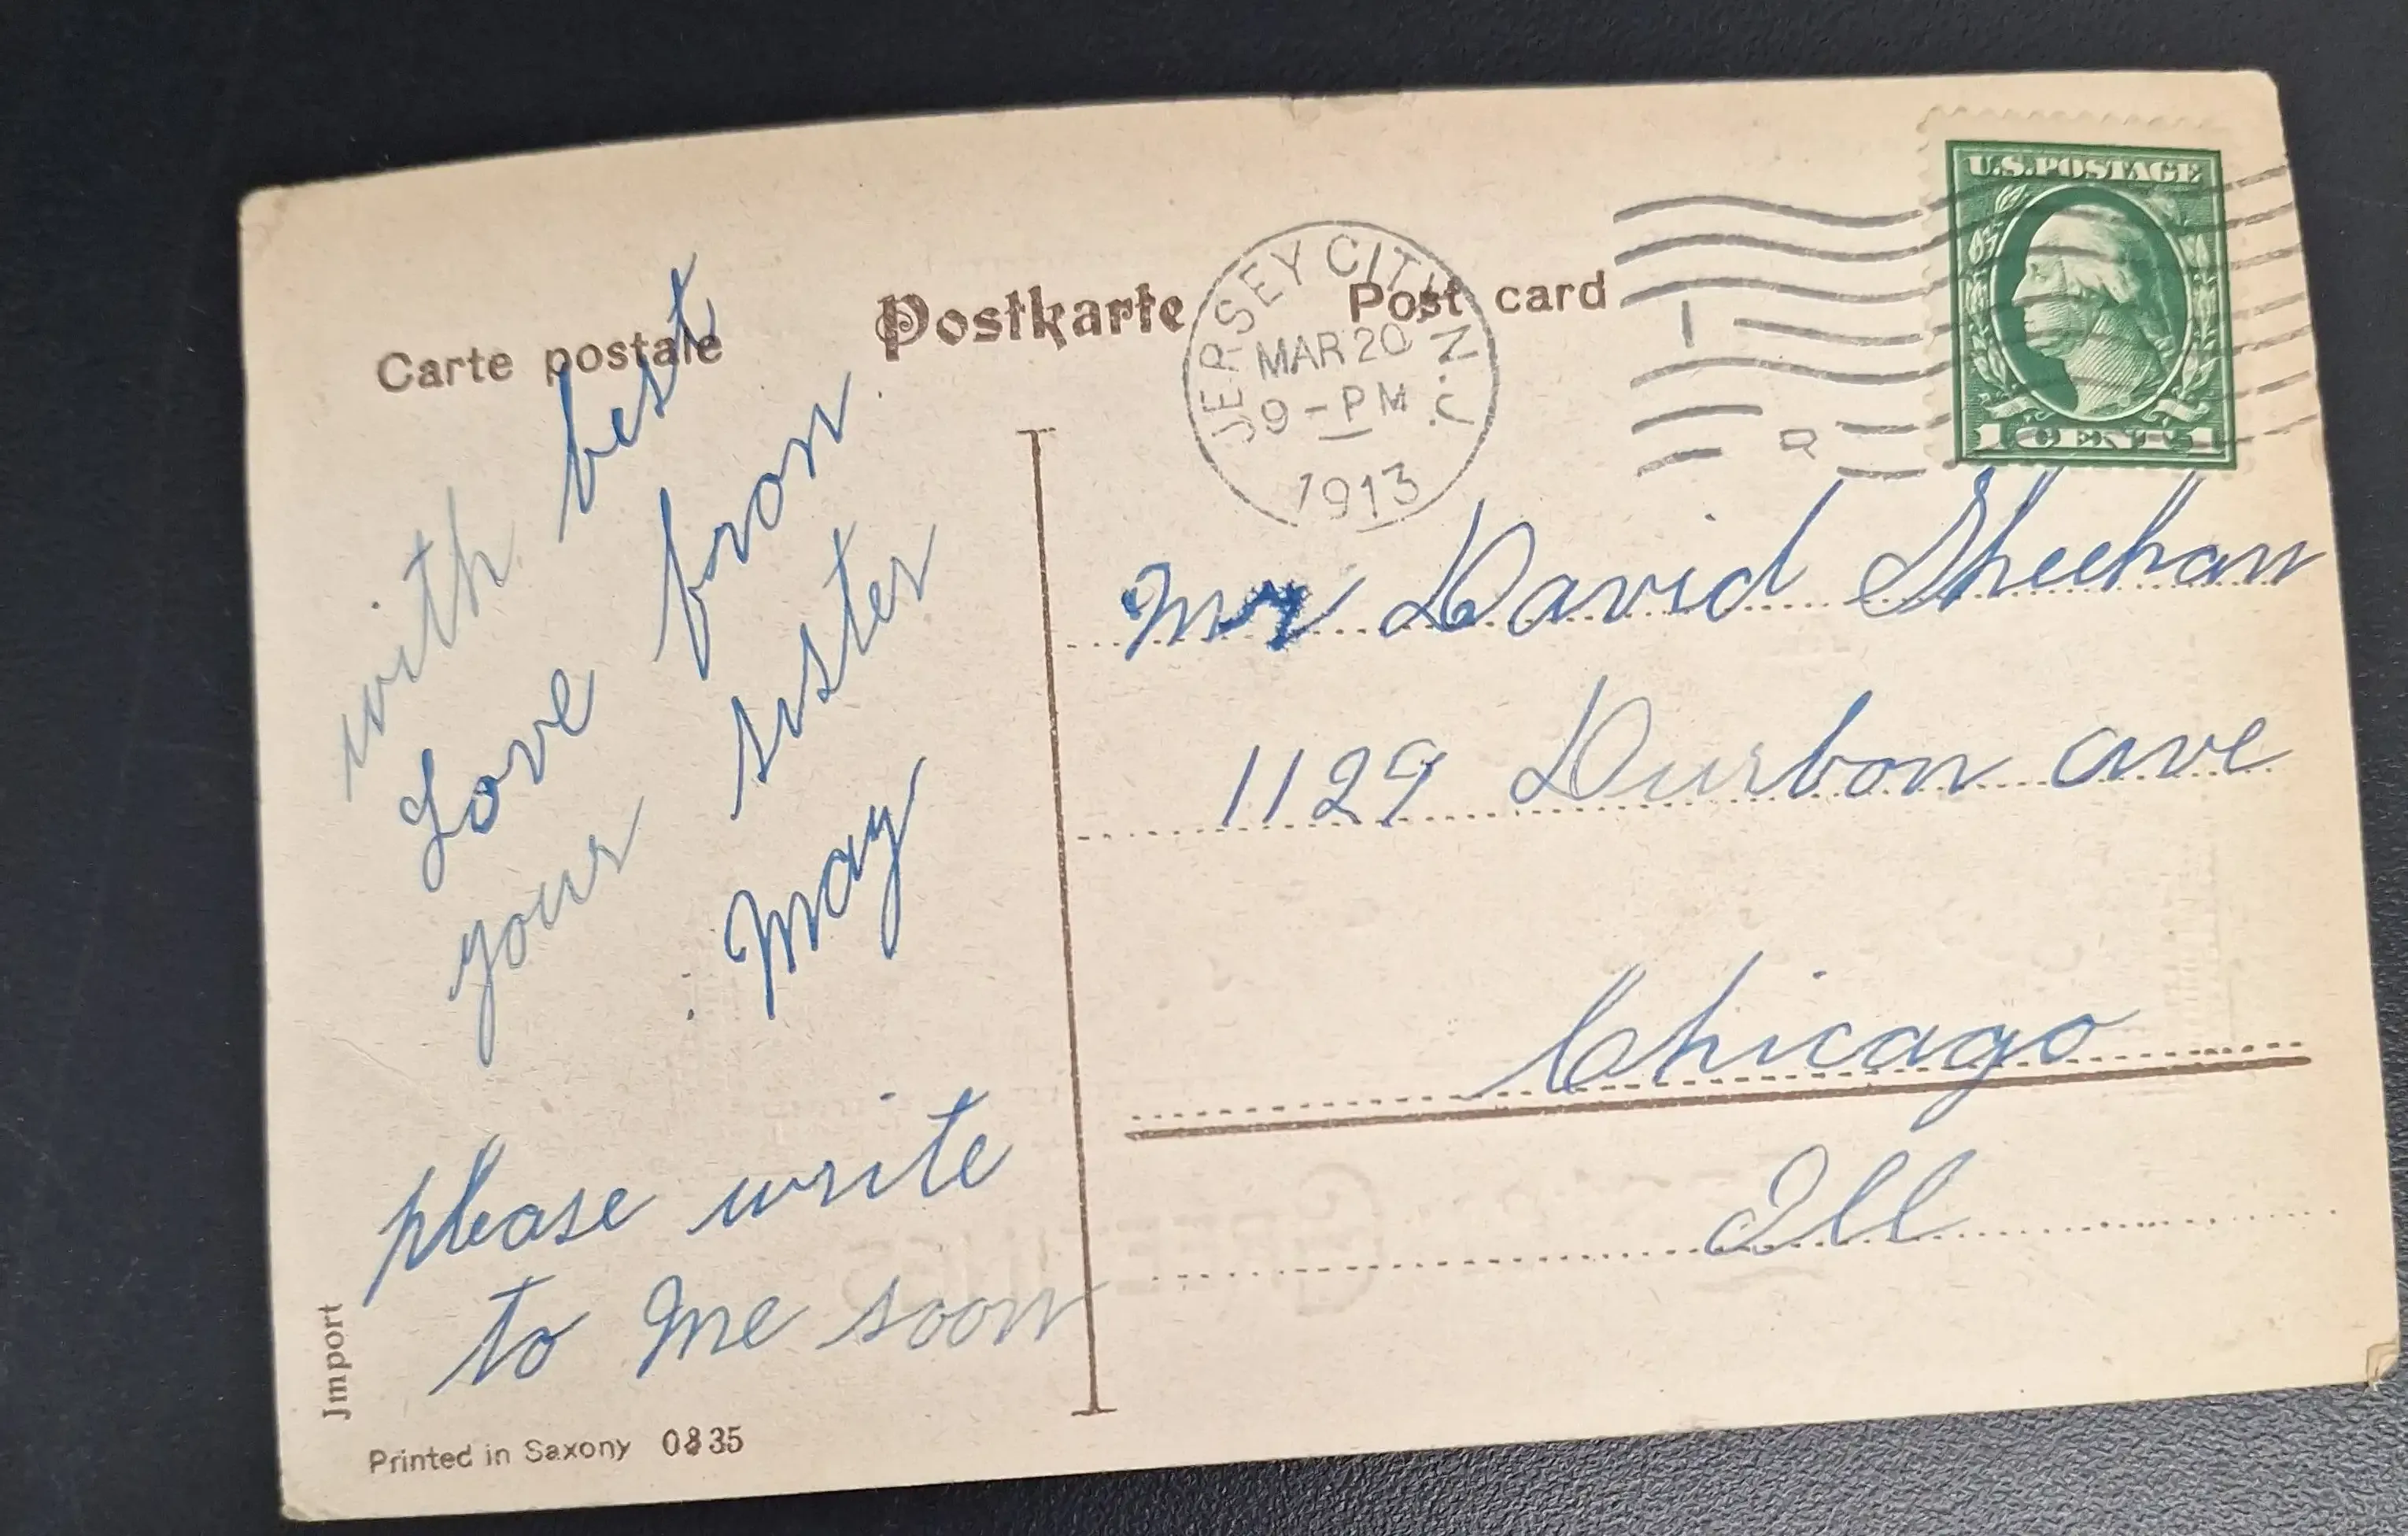 Carte postale Postkarte Post card
JERSEY CITY N.J.
MAR 20
9-PM
1913
U.S. POSTAGE
1 CENT 1
with best
Love from
your sister
May
please write
to me soon
Mr David Sheehan
1129 Durbon ave
Chicago
Ill
Import
Printed in Saxony 0835